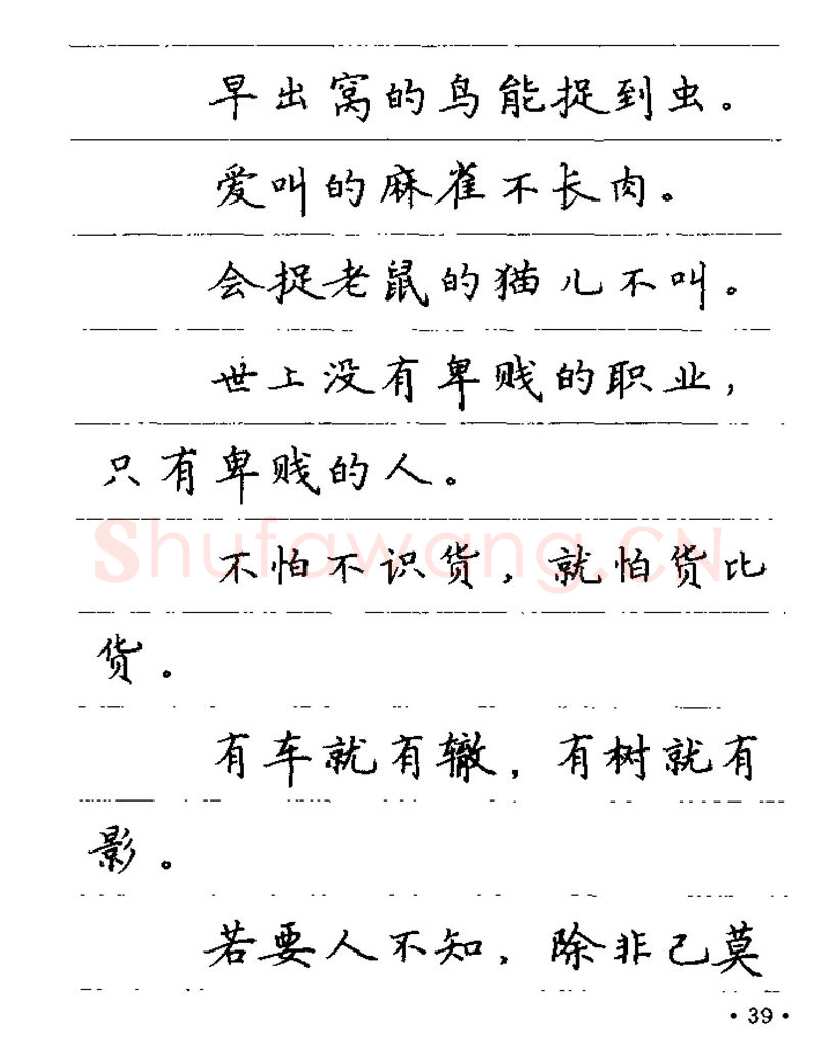 早出窝的鸟能捉到虫。
爱叫的麻雀不长肉。
会捉老鼠的猫儿不叫。
世上没有卑贱的职业,
只有卑贱的人。
Shufawang.CN
不怕不识货,就怕货比
货。
有车就有辙,有树就有
影。
若要人不知,除非己莫
·39·